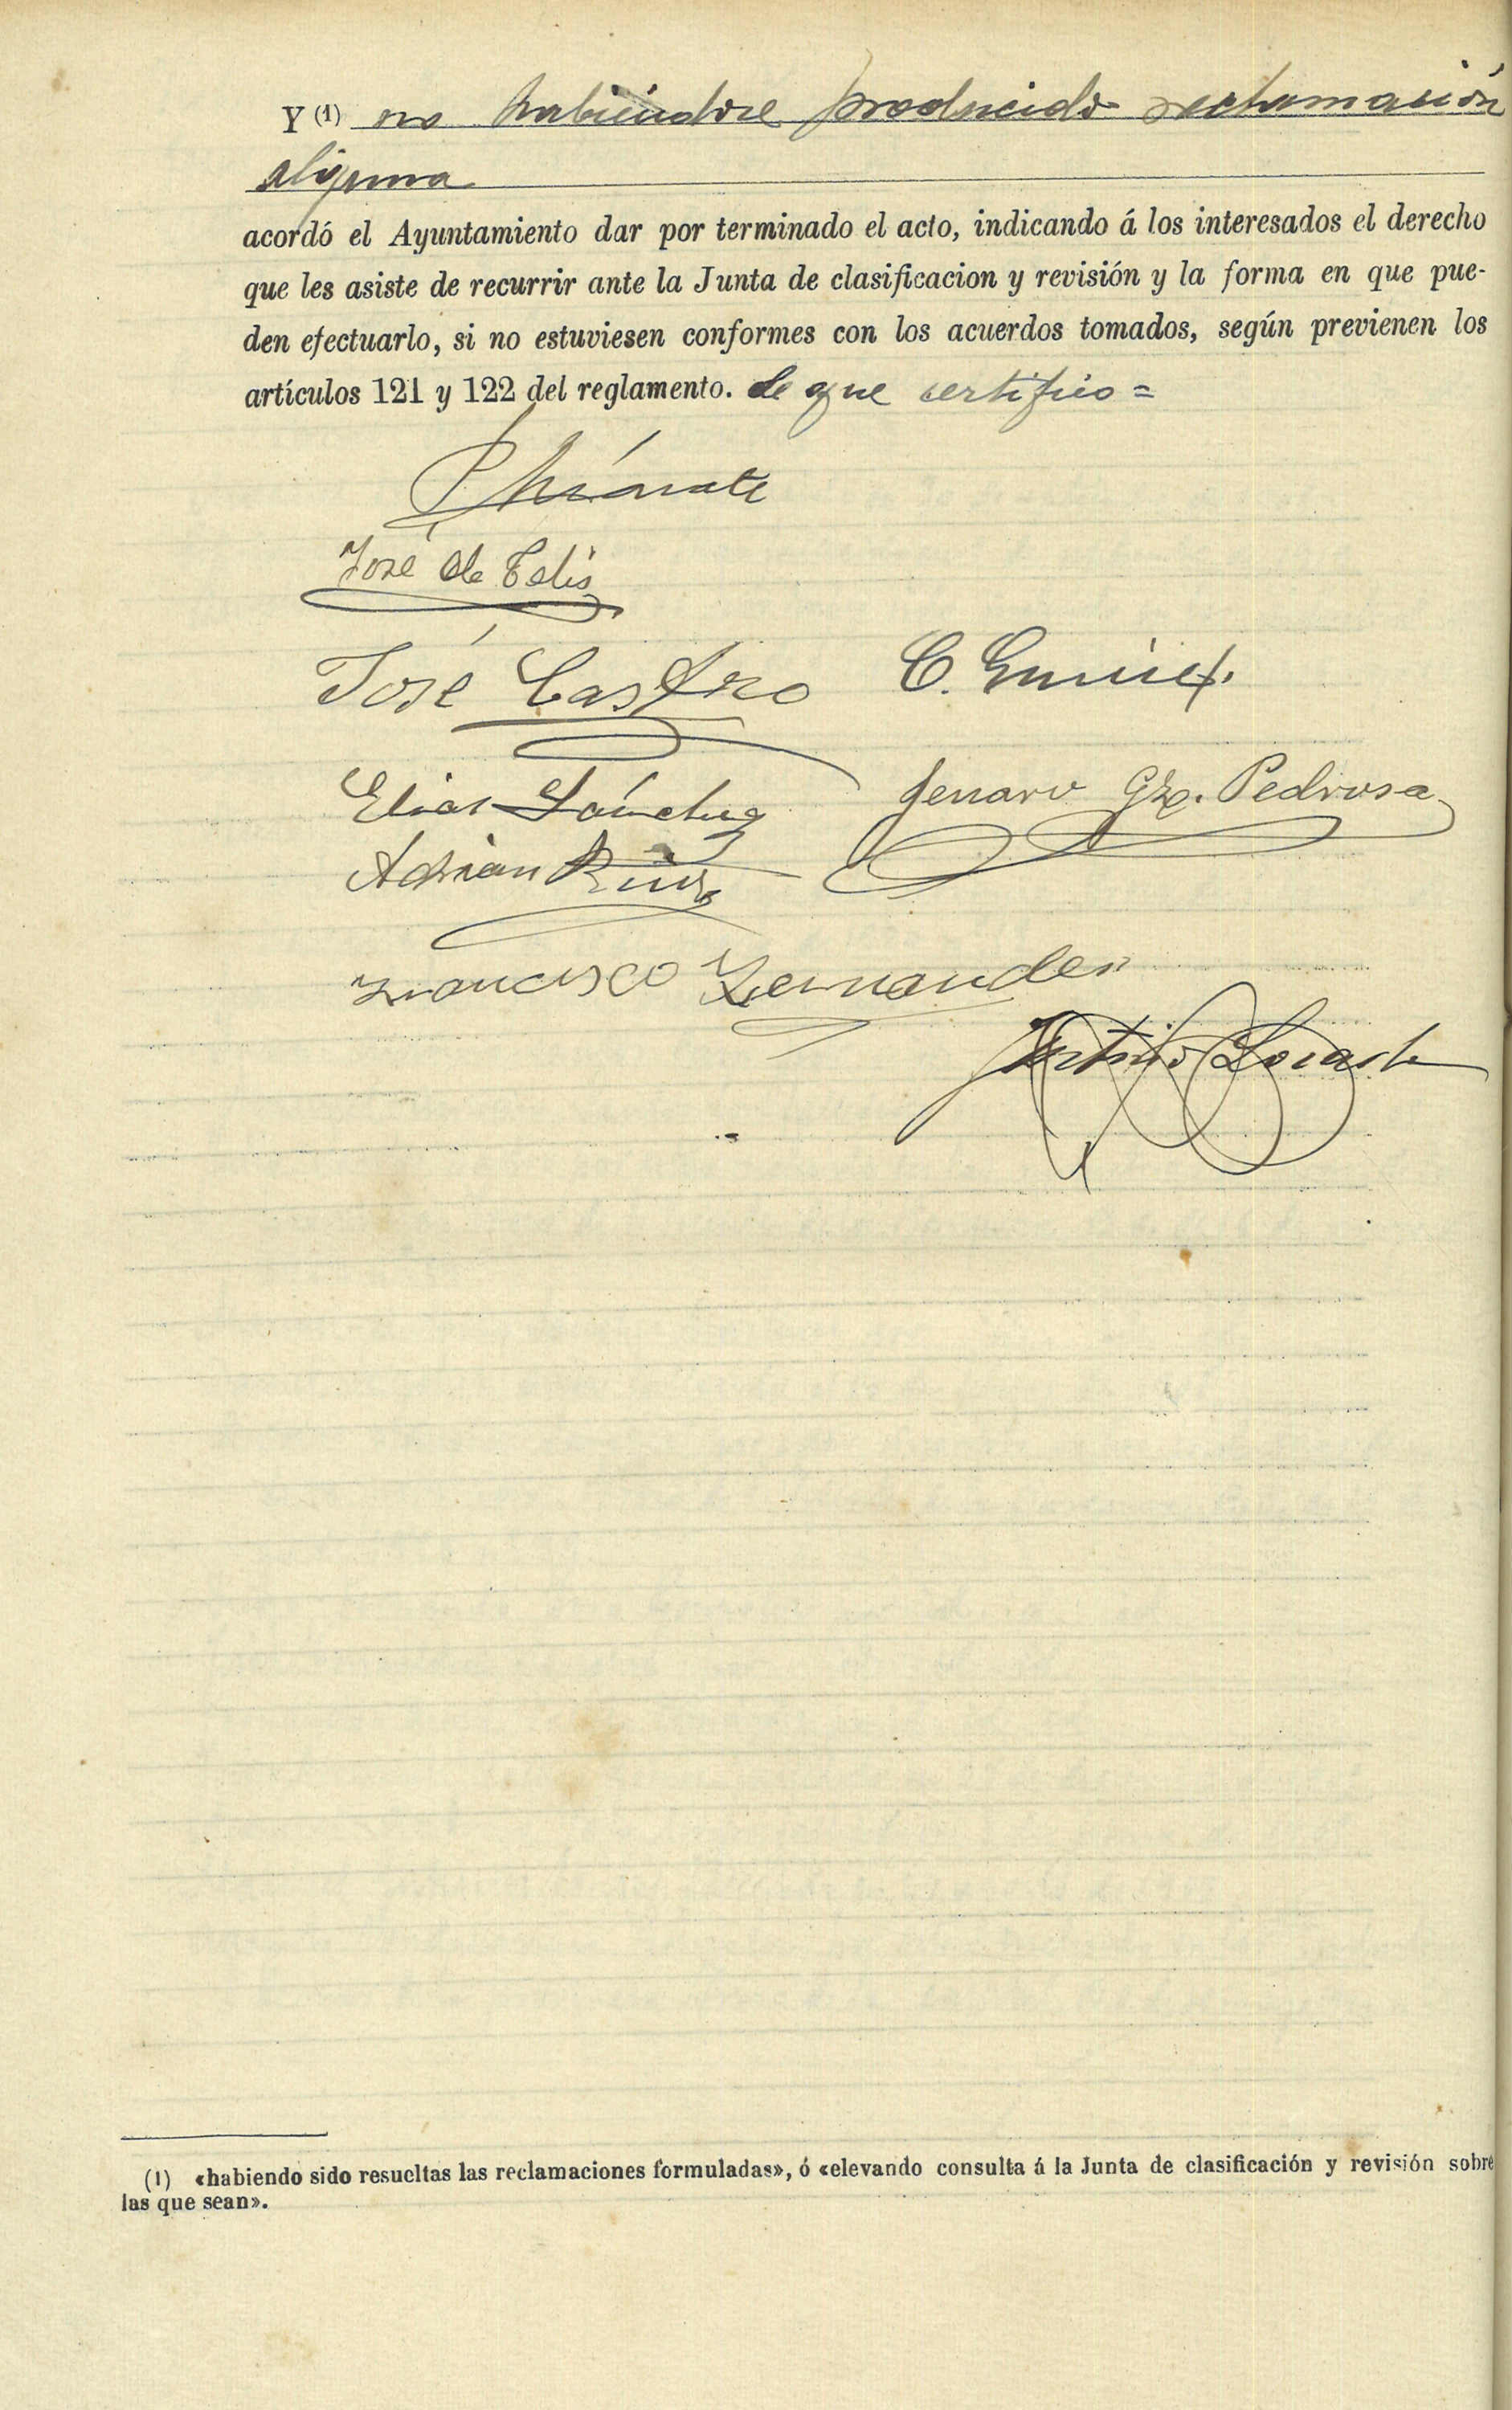 Y (1) no habiéndose producido reclamación
alguna
acordó el Ayuntamiento dar por terminado el acto, indicando á los interesados el derecho
que les asiste de recurrir ante la Junta de clasificacion y revisión y la forma en que pue-
den efectuarlo, si no estuviesen conformes con los acuerdos tomados, según previenen los
artículos 121 y 122 del reglamento. de que certifico =
José de
José Castro C.
Elias Sánchez Jenaro Gze. Pedrosa
Adrian Ruiz
Francisco Fernandez
Antonio
(1) «habiendo sido resueltas las reclamaciones formuladas», ó «elevando consulta á la Junta de clasificación y revisión sobre
las que sean».